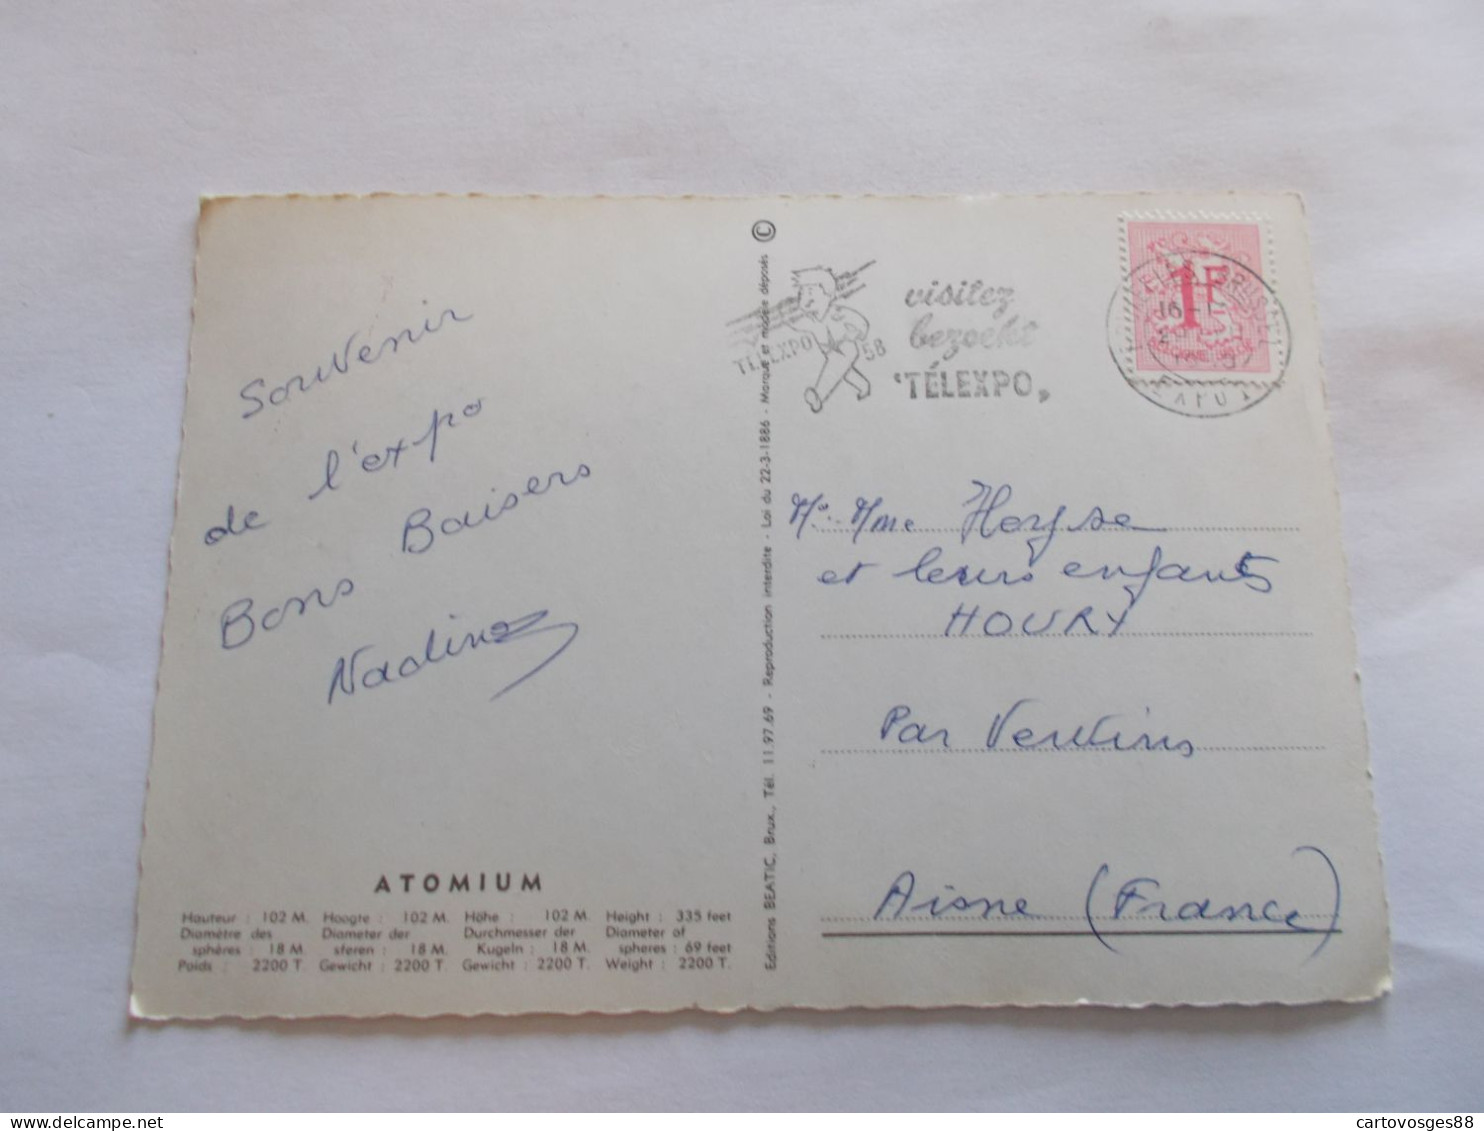 Souvenir
de l'expo
Bons Baisers
Nadine
ATOMIUM
Hauteur : 102 M. Hoogte : 102 M. Höhe : 102 M. Height : 335 feet
Diamètre des Diameter der Durchmesser der Diameter of
sphères : 18 M. sferen : 18 M. Kugeln : 18 M. spheres : 69 feet
Poids : 2200 T. Gewicht : 2200 T. Gewicht : 2200 T. Weight : 2200 T.
Editions BEATIC, Brux., Tél. 11.97.69 - Reproduction interdite - Loi du 22-3-1886 - Marque et modèle déposés ©
TELEXPO 58
visitez
bezoekt
"TÉLEXPO"
1F
BELGIQUE BELGIE
Mr Mme
et leurs enfants
HOURY
Par Vervins
Aisne (France)
cartovosges88